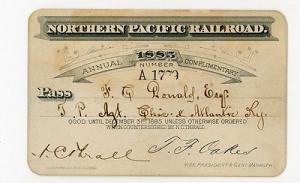 NORTHERN PACIFIC RAILROAD.
1885
ANNUAL NUMBER COMPLIMENTARY
A 1779
Pass F. G. Ronald, Esq.
T. P. Agt. Chic. & Atlantic Ry.
GOOD UNTIL DECEMBER 31ST 1885 UNLESS OTHERWISE ORDERED
WHEN COUNTERSIGNED BY N.C.THRALL.
N. C. Thrall T. F. Oakes
VICE PRESIDENT & GENL MANAGER.